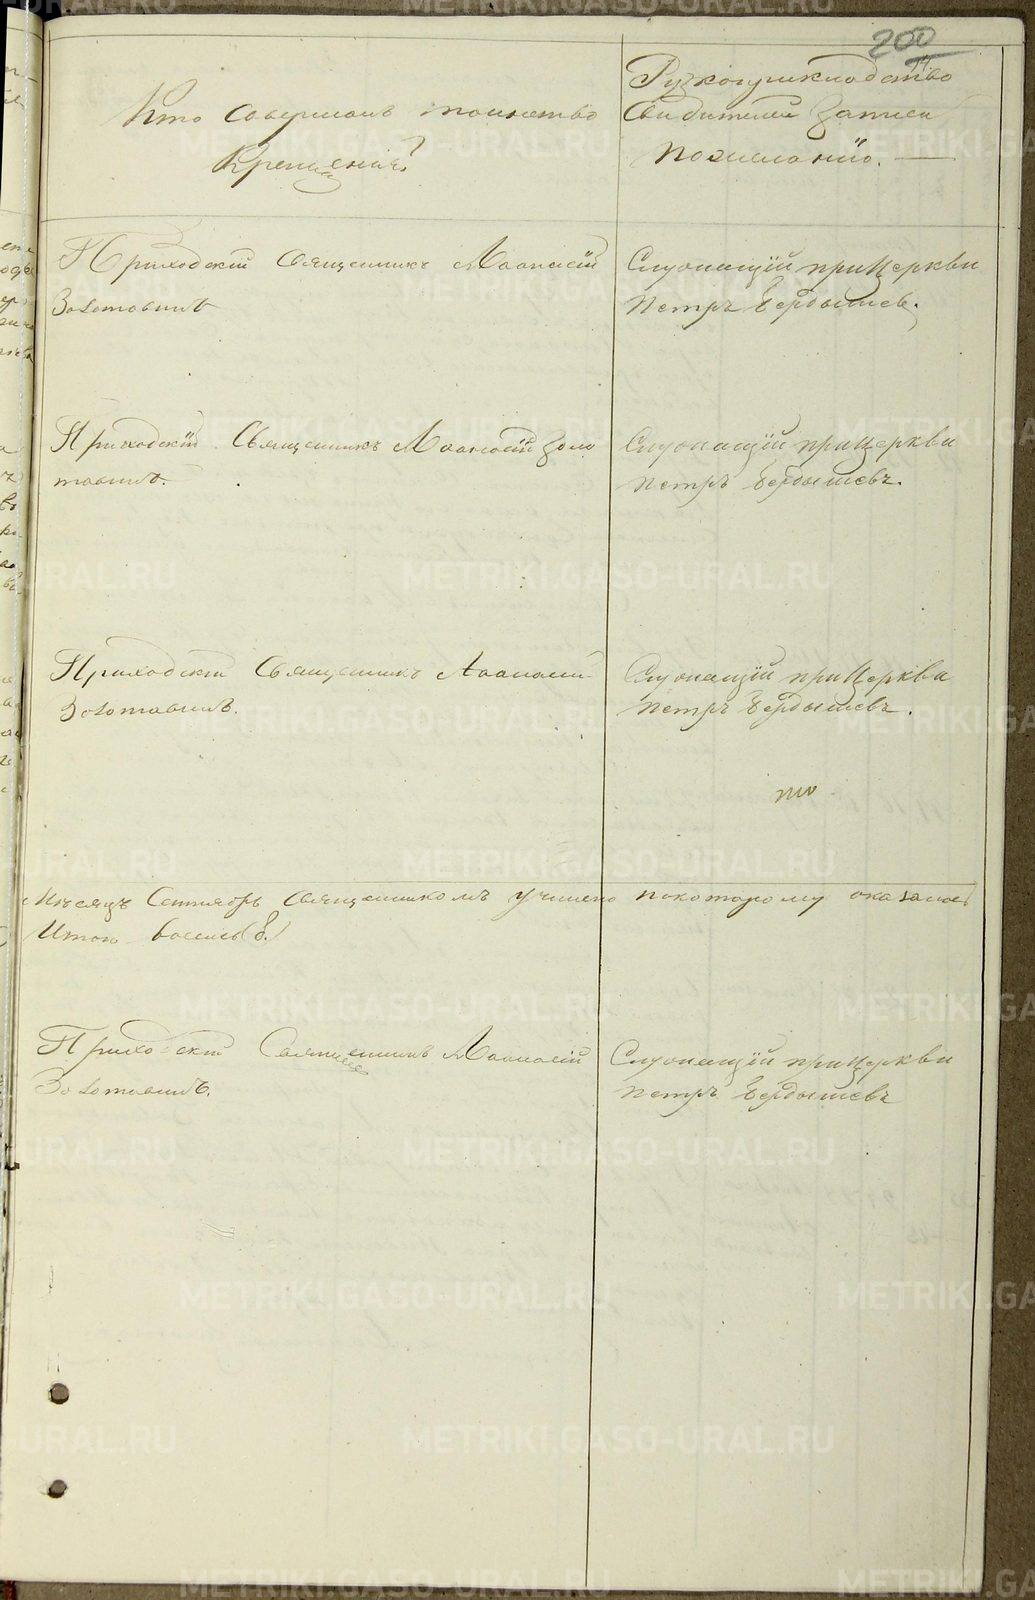 200
Кто совершалъ таинство
Крещенія?
Рукоприкладство
Свидѣтелей записи
по желанію.
Приходскій Священникъ Аѳанасій
Золотавинъ
Служащій при Церкви
Петръ Бердышев.
Приходскій Священникъ Аѳанасій Золо
тавинъ.
Служащій при Церкви
Петръ Бердышевъ.
Приходскій Священникъ Аѳанасій
Золотавинъ.
Служащій при Церкви
Петръ Бердышевъ.
Мѣсяцъ Сентябрь Священникомъ учинено по которому оказалось
Итого восемь (8.)
Приходскій Священникъ Аѳанасій
Золотавинъ.
Служащій при Церкви
Петръ Бердышевъ
METRIKI.GASO-URAL.RU